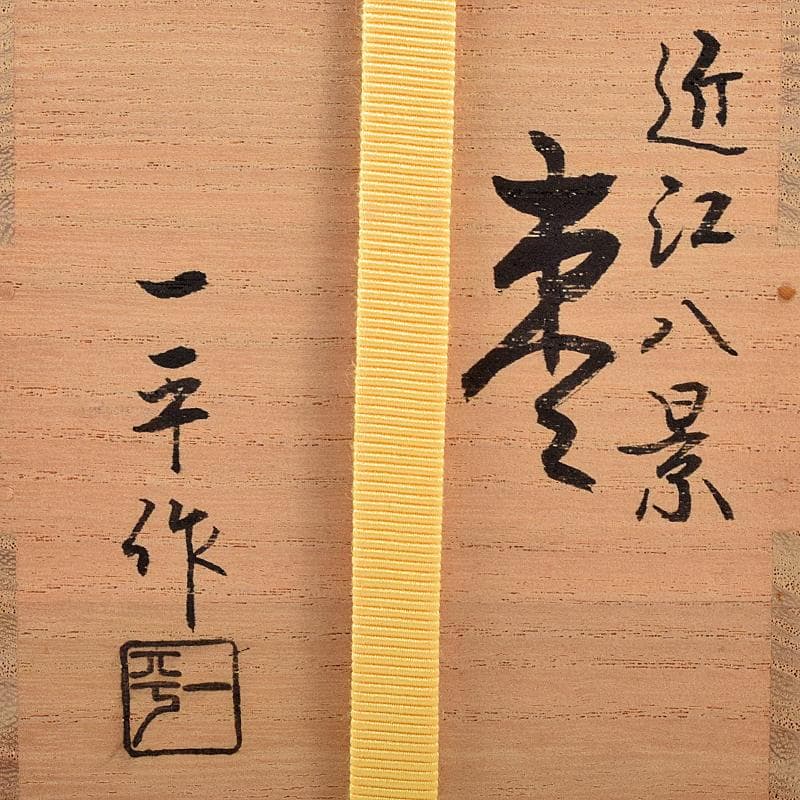 近江八景
棗
一平作
一平